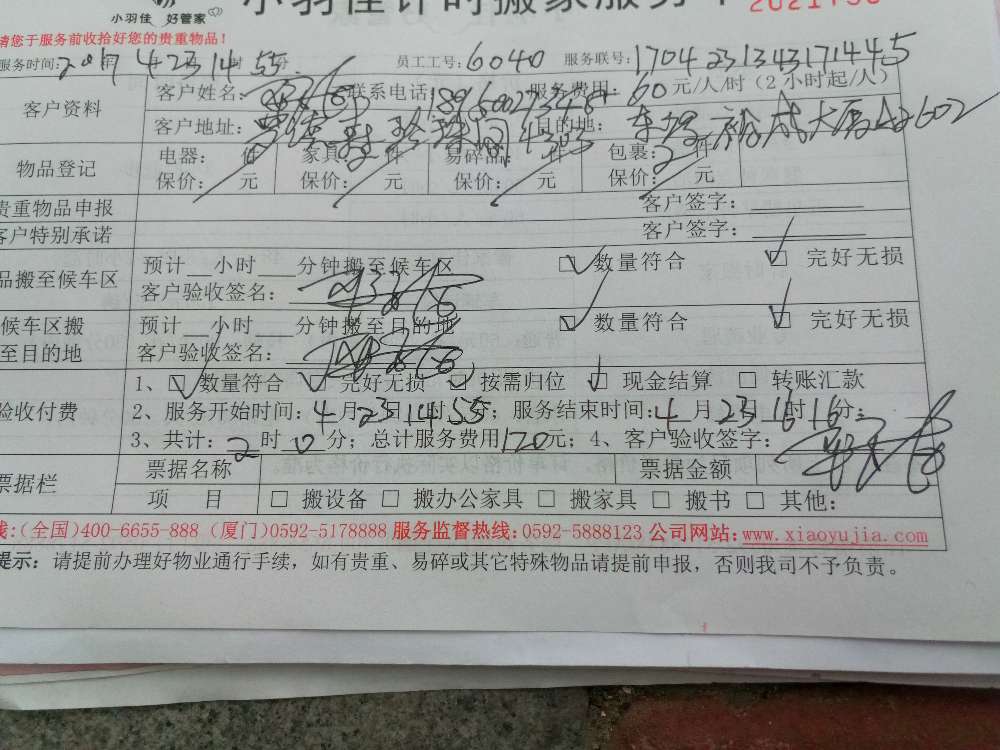 小羽佳 好管家 小羽佳计时搬家服务
请您于服务前收拾好您的贵重物品!
服务时间: 2017 4 23 14 55 分 员工工号:6040 服务联号:170423134317445
客户资料 客户姓名: 联系电话: 服务费用:60元/人/时(2小时起/人)
客户地址: 目的地: 602
物品登记 电器: 件 家具: 件 易碎品: 件 包裹:2件
保价: 元 保价: 元 保价: 元 保价: 元
贵重物品申报 客户签字:
客户特别承诺 客户签字:
品搬至候车区 预计__小时___分钟搬至候车区 数量符合 完好无损
客户验收签名:
候车区搬至目的地 预计__小时___分钟搬至目的地 数量符合 完好无损
客户验收签名:
验收付费 1、 数量符合 完好无损 按需归位 现金结算 □ 转账汇款
2、服务开始时间:4月23日14时55分;服务结束时间:4月23 16时16分;
3、共计:2时0分;总计服务费用120元;4、客户验收签字:
票据栏 票据名称 票据金额
项 目 □ 搬设备 □ 搬办公家具 □ 搬家具 □ 搬书 □ 其他:
线:(全国)400-6655-888 (厦门)0592-5178888 服务监督热线:0592-5888123 公司网站:www.xiaoyujia.com
提示:请提前办理好物业通行手续,如有贵重、易碎或其它特殊物品请提前申报,否则我司不予负责。